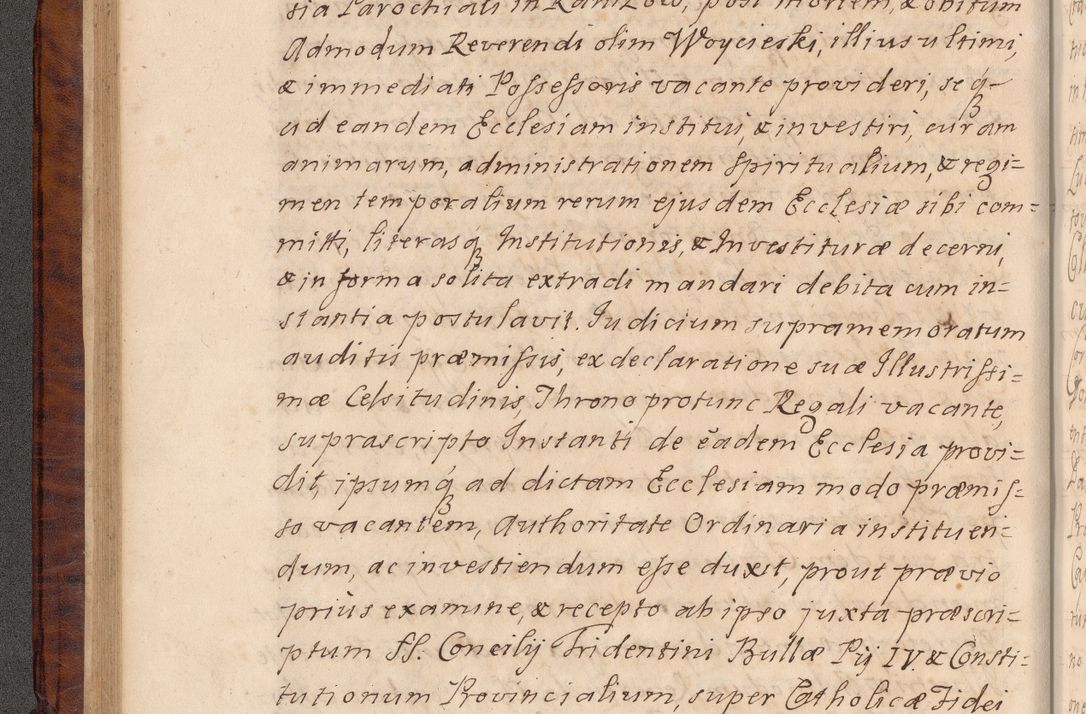 sia Parochiali in Ranizow, post mortem, & obitum
Admodum Reverendi olim Woycieski, illius ultimi,
& immediati Possessoris vacante provideri, seq̃
ad eandem Ecclesiam institui, & investiri, curam
animarum, administrationem spiritualium, & regi=
men temporalium rerum ejusdem Ecclesiæ sibi com=
mitti, literasq́ Institutionis, & Investituræ decerni,
& in forma solita extradi mandari debita cum in=
stantia postulavit. Judicium supramemoratum
auditis præmissis, ex declaratione suæ Illustrissi=
mæ Celsitudinis, Throno protunc Regali vacante,
suprascripto Instanti de eadem Ecclesia provi=
dit, ipsumq́ ad dictam Ecclesiam modo præmis=
so vacantem, Authoritate Ordinaria instituen=
dum, ac investiendum esse duxit, prout prævio
prius examine, & recepto ab ipso juxta præscri=
ptum SS. Concilij Tridentini Bullæ Pij IV. & Consti=
tutionum Provincialium, super Catholicæ Fidei